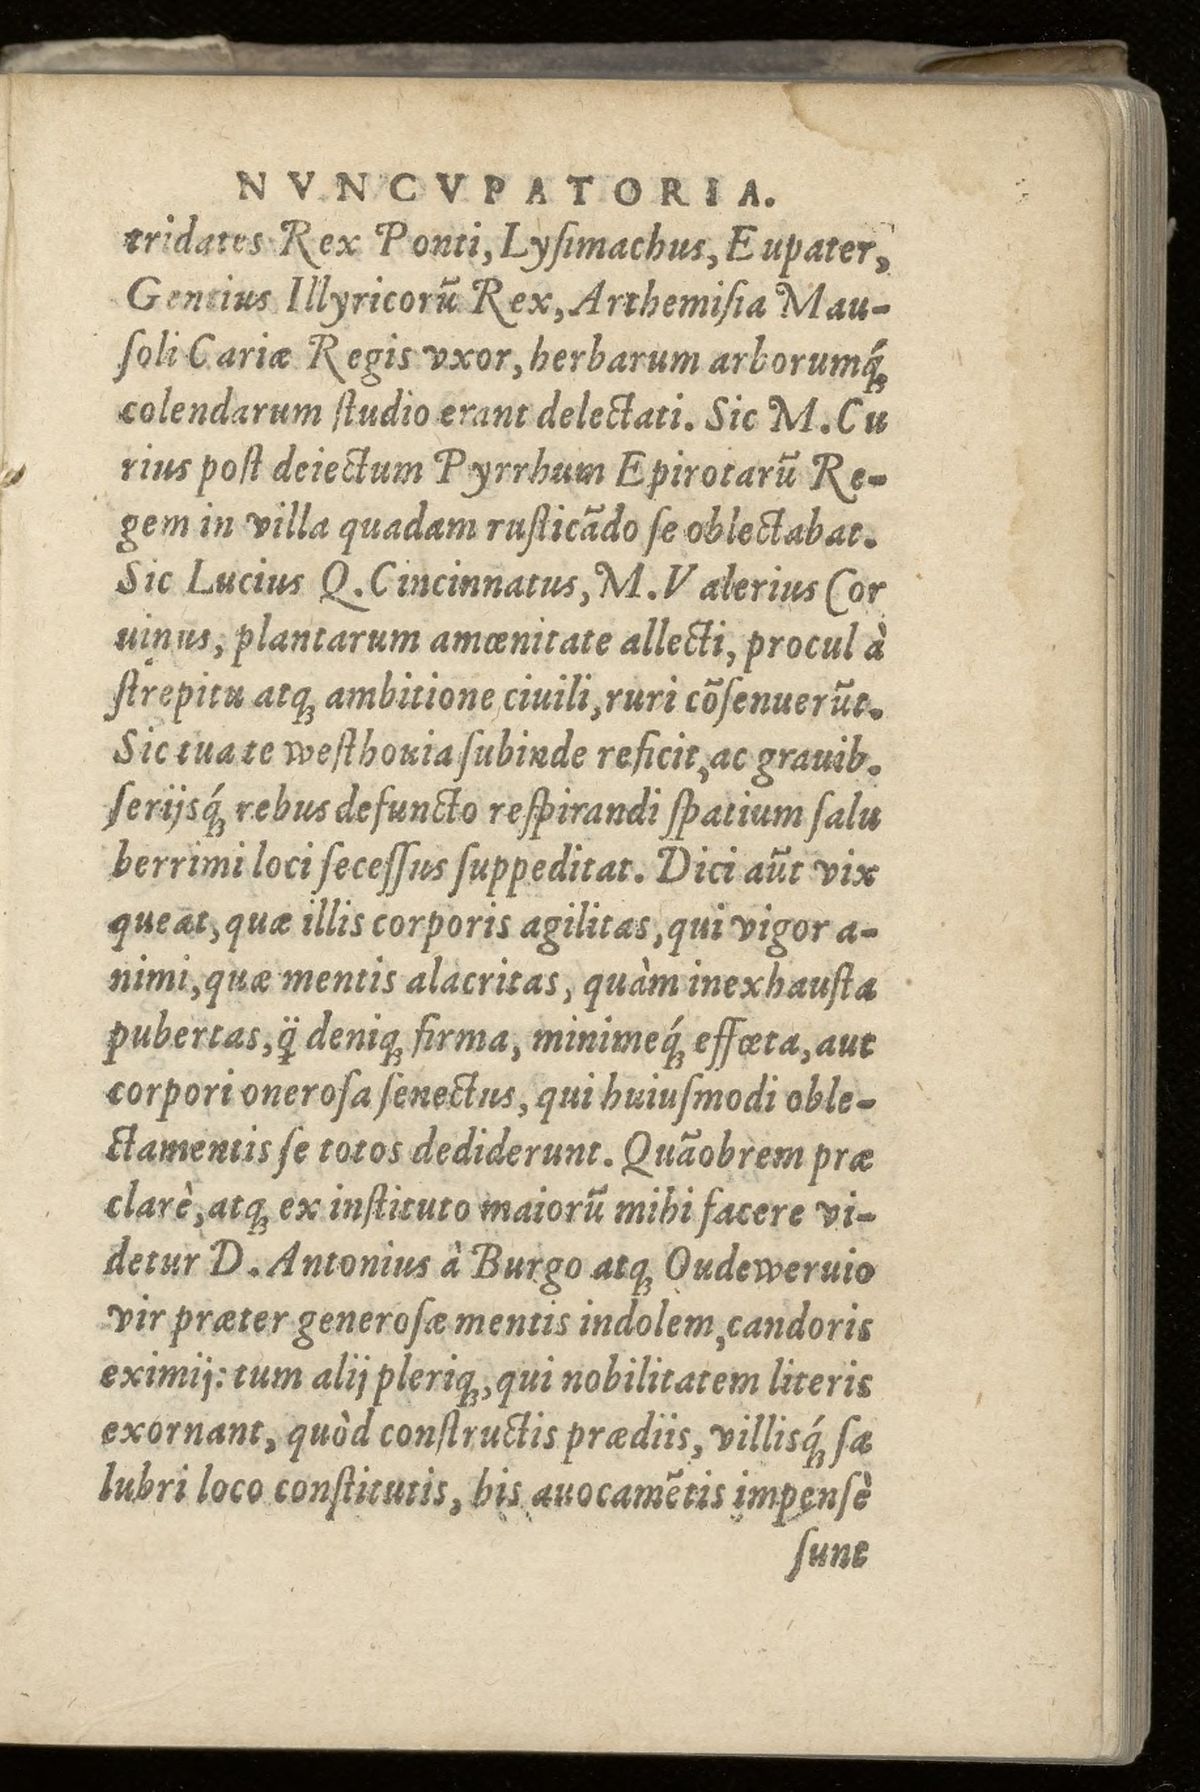 NVNCVPATORIA.
tridates Rex Ponti, Lyſimachus, Eupater,
Gentius Illyricorū Rex, Arthemiſia Mau-
ſoli Cariæ Regis vxor, herbarum arborumq́ꝫ
colendarum ſtudio erant delectati. Sic M. Cu
rius poſt deiectum Pyrrhum Epirotarū Re-
gem in villa quadam ruſticādo ſe oblectabat.
Sic Lucius Q. Cincinnatus, M. Valerius Cor
uinus, plantarum amœnitate allecti, procul à
ſtrepitu atqꝫ ambitione ciuili, ruri cōſenuerūt.
Sic tua te weſthouia ſubinde reficit, ac grauib.
ſerijsq́ꝫ rebus defuncto reſpirandi ſpatium ſalu
berrimi loci ſeceſſus ſuppeditat. Dici aūt vix
queat, quæ illis corporis agilitas, qui vigor a-
nimi, quæ mentis alacritas, quàm inexhauſta
pubertas, q̄̈ deniqꝫ firma, minimeq́ꝫ effœta, aut
corpori oneroſa ſenectus, qui huiuſmodi oble-
ctamentis ſe totos dediderunt. Quāobrem præ
clarè, atqꝫ ex inſtituto maiorū mihi facere vi-
detur D. Antonius à Burgo atqꝫ Oudeweruio
vir præter generoſæ mentis indolem, candoris
eximij: tum alij pleriqꝫ, qui nobilitatem literis
exornant, quòd conſtructis prædiis, villisq́ꝫ ſæ
lubri loco conſtitutis, his auocamētis impenſè
ſunt